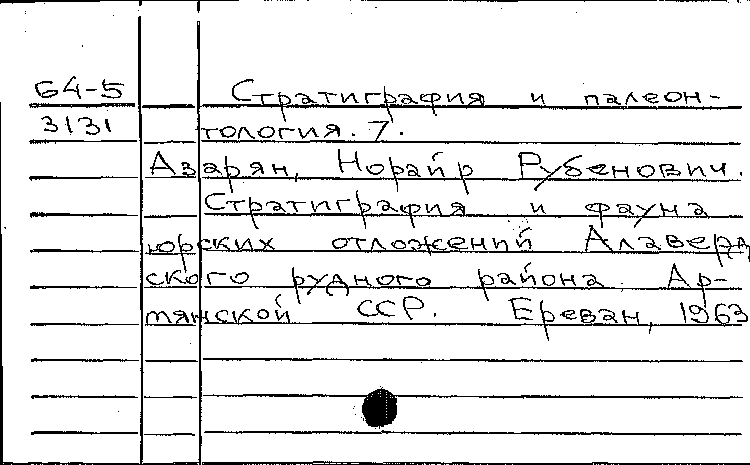 64-5 Стратиграфия и палеон-
3131 тология. 7.
Азарян, Норайр Рубенович.
Стратиграфия и фауна
юрских отложений Алаверд
ского рудного района. Ар-
мянской ССР. Ереван, 1963